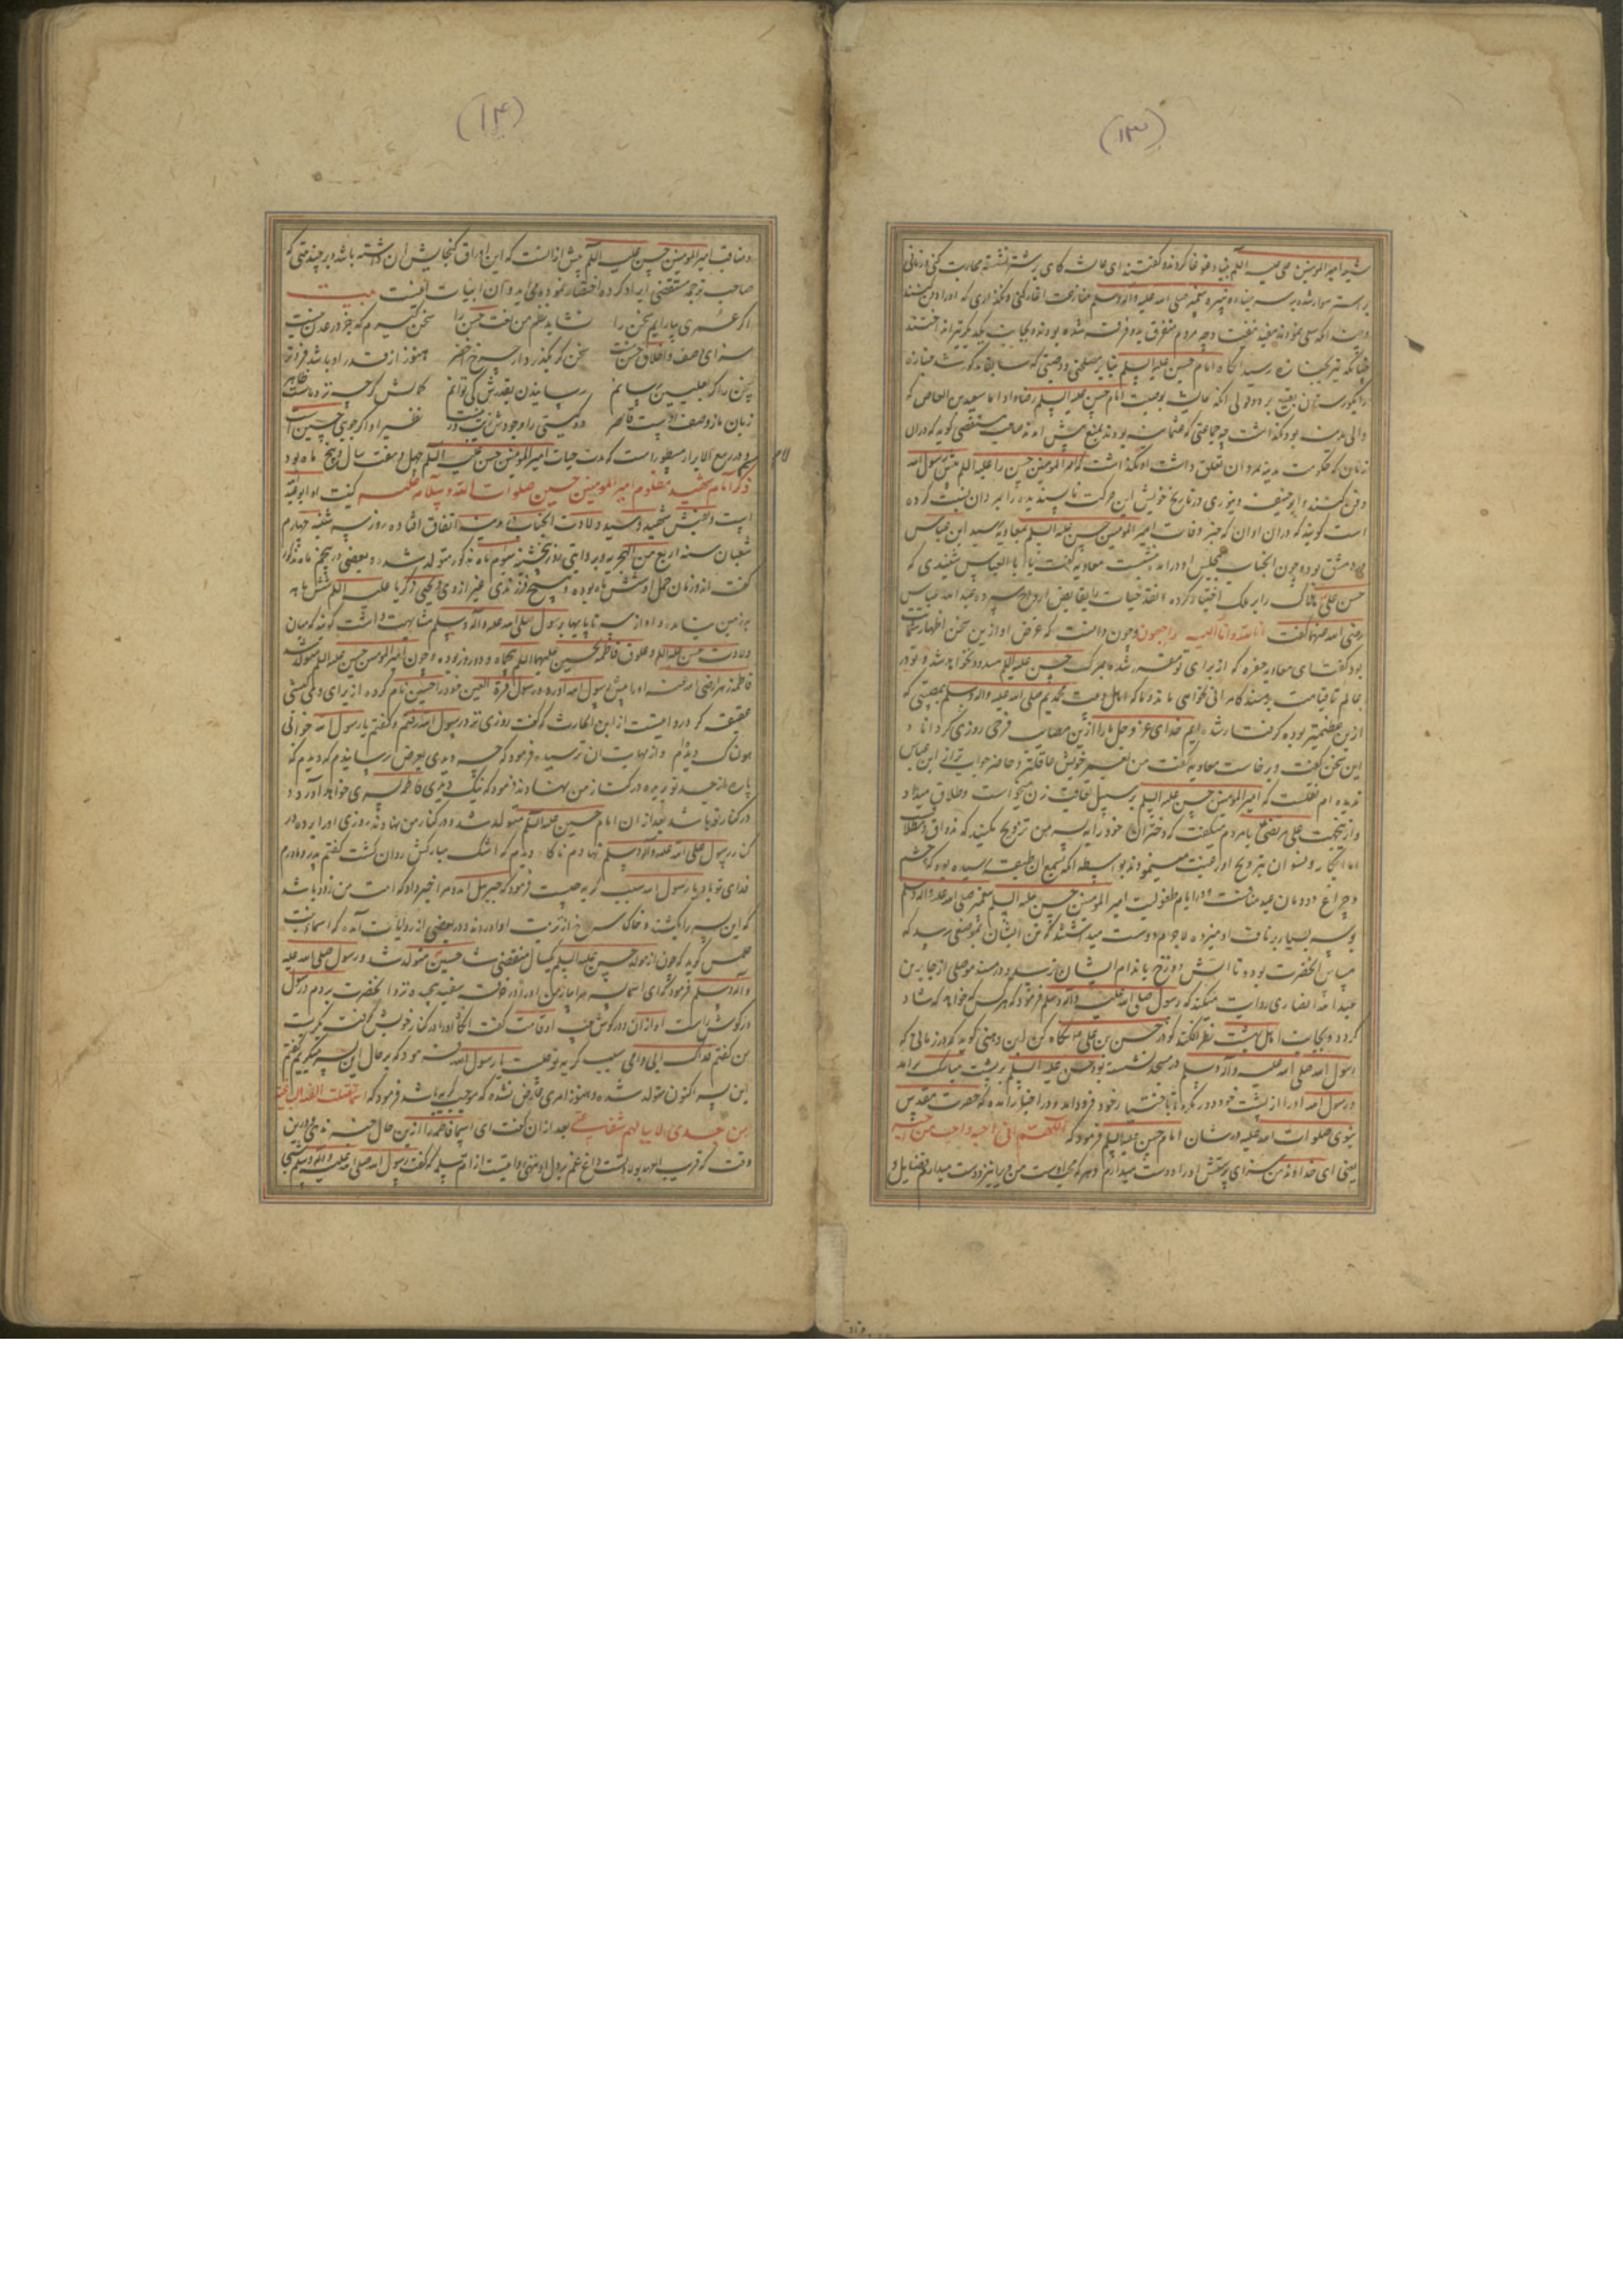 (۱۳)
شیعه امیرالمومنین علی علیه السلم بنیاد غوغا کردند و گفتند ای عایشه گاهی بر شتر نشسته محاربت کنی و زمانی
بر استر سوار شده بر سر جنازه نبیره پیغمبر صلی الله علیه وآله وسلم منازعت آغاز کنی و نگذاری که او را دفن کنند
مردم متفرق بدو فرقه شده بودند و بجانب یکدیگر تیر انداختند
چنانکه تیر بجنازه رسید آنگاه امام حسین علیه السلم بنابر مصلحتی و وصیتی که سابقا مذکور شد جنازه
را بگورستان بقیع برد و قولی آنکه عایشه بوصیت امام حسن علیه السلم رضا داد اما سعید بن العاص که
والی مدینه بود نگذاشت چه جماعتی که عثمانیه بودند بمنع پیش آمدند صاحب مستقصی گوید که دران
زمان که حکومت مدینه بمروان تعلق داشت او نگذاشت که امیرالمومنین حسن را علیه السلم پیش رسول الله
دفن کنند و ابوحنیفه دینوری در تاریخ خویش این حرکت ناپسندیده را بمروان نسبت کرده
است گویند که دران اوان که خبر وفات امیرالمومنین حسن علیه السلم بمعاویه رسید ابن عباس
در دمشق بود و چون آنجناب بمجلس او درآمد بنشست معاویه گفت یا ابا العباس شنیدی که
حسن علی
رضی الله عنهما گفت انا لله وانا الیه راجعون و چون دانست که غرض او ازین سخن اظهار شماتت
بود گفت ای معاویه حفره که از برای تو مقرر شده بمرگ حسن علیه السلم مسدود نخواهد شد و تو در
عالم تا قیامت بر مسند کامرانی نخواهی ماند و ما که اهل بیت محمدیم صلی الله علیه وآله وسلم بمصیبتی که
ازین عظیمتر بوده گرفتار شده ایم خدای عز و جل ما را ازین مصایب فرجی روزی گرداناد
این سخن گفت و برخاست معاویه گفت من بعمر خویش عاقلتر و حاضر جواب تر از ابن عباس
ندیده ام نقلست که امیرالمومنین حسن علیه السلم بر سبیل تعاقب زن میخواست و طلاق میداد
و ازینجهت علی مرتضی با مردم میگفت که دختران خود را به پسر من تزویج مکنید که مذواق و مطلاق
اما ابکار و نسوان بتزویج او رغبت مینمودند بواسطه آنکه بسمع آن طبقه رسیده بود که چشم
و چراغ دودمان عبد مناف در ایام طفولیت امیرالمومنین حسن علیه السلم پیغمبر صلی الله علیه وآله وسلم
بوسه بسیار بر ناف او میزده لاجرم دوست میداشتند که تن ایشان بموضعی رسد که
مماس آنحضرت بوده تا آتش دوزخ باندام ایشان نرسد و در مسند موصلی از جابر بن
عبد الله انصاری روایت میکند که رسول صلی الله علیه وآله وسلم فرمود که هر کس که خواهد که شاد
گردد و بجانب اهل بهشت نظر افکند گو در حسن بن علی نگاه کن ابن وهنی گوید که در زمانی که
رسول الله صلی الله علیه وآله وسلم در مسجد نشسته بود حسن علیه السلم بر پشت مبارک برآمد
و رسول الله او را از پشت خود دور نکرد تا باختیار خود فرود آمد و در اخبار آمده که حضرت مقدس
نبوی صلوات الله علیه در شان امام حسن علیه السلم فرمود که اللهم انی احبه و احب من یحبه
یعنی ای خداوند من سزای پرستش او را دوست میدارم و هر که محب اوست من ویرا نیز دوست میدارم فضایل و
(۱۴)
مناقب امیرالمومنین حسن علیه السلم بیش از انست که این اوراق گنجایش آن داشته باشد و بر چند بیتی که
صاحب ترجمه مستقصی ایراد کرده اختصار نموده می آید و آن ابیات اینست بیت
اگر عمری بیارایم سخن را نشاید نظم من نعت حسن را سخن گیرم که جز در عدن نیست
سزای وصف و اخلاق حسن نیست سخن گر بگذرد از چرخ اخضر هنوز از قدر او باشد فروتر
سخن را گر بعلیین رسانم رسانیدن بقدرش کی توانم کمالش گر چه نزد ماست ظاهر
زبان ما ز وصف اوست قاصر
در ربیع الابرار مسطور است که مدت حیات امیرالمومنین حسن علیه السلم چهل و هفت سال و پنج ماه بود
ذکر امام شهید مظلوم امیرالمومنین حسین صلوات الله وسلامه علیه کنیت او ابو عبد الله
است و لقبش شهید و سید ولادت آنجناب در مدینه اتفاق افتاده روز سه شنبه چهارم
شعبان سنه اربع من الهجریه و بروایتی روز پنجشنبه سیوم ماه مذکور متولد شد و بعضی در پنجم ماه مذکور
گفته اند و زمان حمل او شش ماه بوده و هیچ فرزندی غیر از وی و یحیی زکریا علیه السلم شش ماهه
بر زمین نیامده و او از سینه تا پایها برسول صلی الله علیه وآله وسلم مشابهت داشت گویند که میان
ولادت حسن علیه السلم و علوق فاطمه بحسین علیهما السلم پنجاه و دو روز بوده و چون امیرالمومنین حسین علیه السلم متولد شد
فاطمه زهرا رضی الله عنها او را پیش رسول الله آورد و رسول قرة العین خود را حسین نام کرده از برای وی کبشی
عقیقه کرد روایتست از ابن الحارث که گفت روزی نزد رسول الله رفتم و گفتم یا رسول الله خوابی
هولناک دیده ام و از مهابت آن ترسیده فرمود که چه دیدی بعرض رسانیدم که دیدم که
پاره از جسد تو بریده در کنار من نهادند فرمود که نیک دیدی فاطمه پسری خواهد آورد و
در کنار تو باشد بعد از آن امام حسین علیه السلم متولد شد و در کنار من نهادند روزی او را برده در
کنار رسول صلی الله علیه وآله وسلم نهادم ناگاه دیدم که اشک مبارکش روان گشت گفتم پدر و مادرم
فدای تو باد یا رسول الله سبب گریه چیست فرمود که جبریل آمد و مرا خبر داد که امت من زود باشد
که این پسر را بکشند و خاک سرخ از تربت او آورده و در بعضی از روایات آمده که اسما بنت
عمیس گوید که چون از مولد حسن علیه السلم یکسال منقضی شد حسین متولد شد و رسول صلی الله علیه
وآله وسلم فرمود که ای اسما پسر مرا بیار من او را در خرقه سفید پیچیده نزد آنحضرت بردم و رسول
در گوش راست او اذان و در گوش چپ او قامت گفت آنگاه او را در کنار خویش گرفت بگریست
من گفتم فداک ابی و امی سبب گریه تو چیست یا رسول الله فرمود که بر حال این پسر میگریم گفتم
این پسر اکنون متولد شده و هنوز امری عارض نشده که موجب گریه باشد فرمود که انما تقتله الفئة الباغیة
من بعدی لا ینالهم شفاعتی بعد از آن گفت ای اسما فاطمه را ازین حال خبر ندهی درین
وقت که قریب العهد بولادتست داغ غم بر دل او منهی و روایتست از ام سلمه که گفت رسول الله صلی الله علیه وآله وسلم شبی